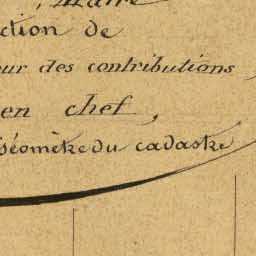 , Maire
ction de
ur des contributions
en chef,
Géomètre du cadastre